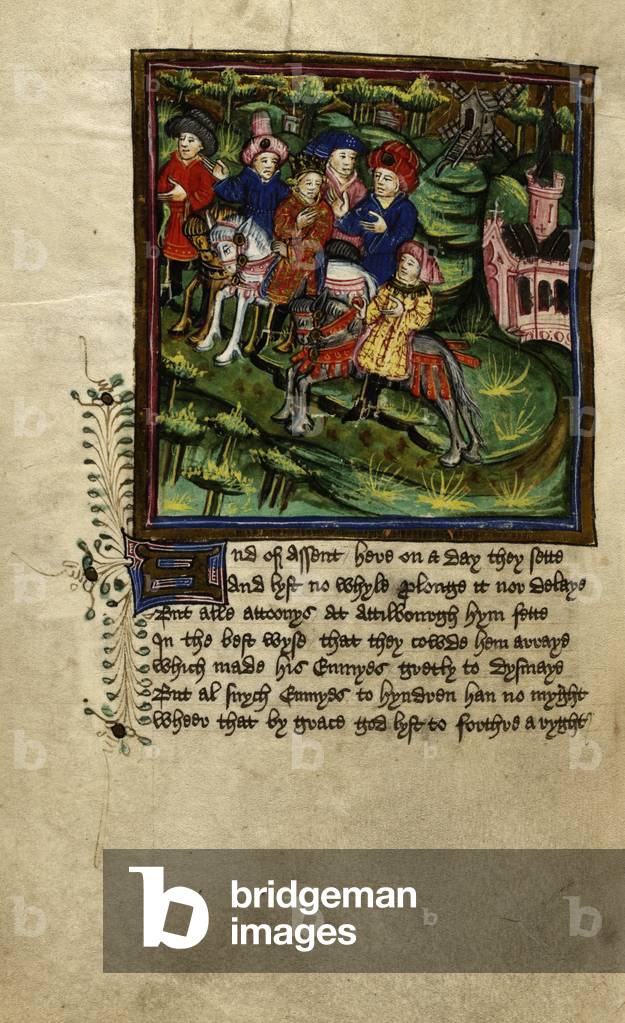 And of assent here on a day they sette
And lyst no whyle prolonge it nor delaye
But alle attoonys at Attilbourgh hym sette
In the best wyse that they cowde hem arraye
Which made his Ennyes gretly to dysmaye
But al suych Enmyes to hyndren han no myght
Wheer that by grace god lyst to forthre a ryght
b bridgeman
images